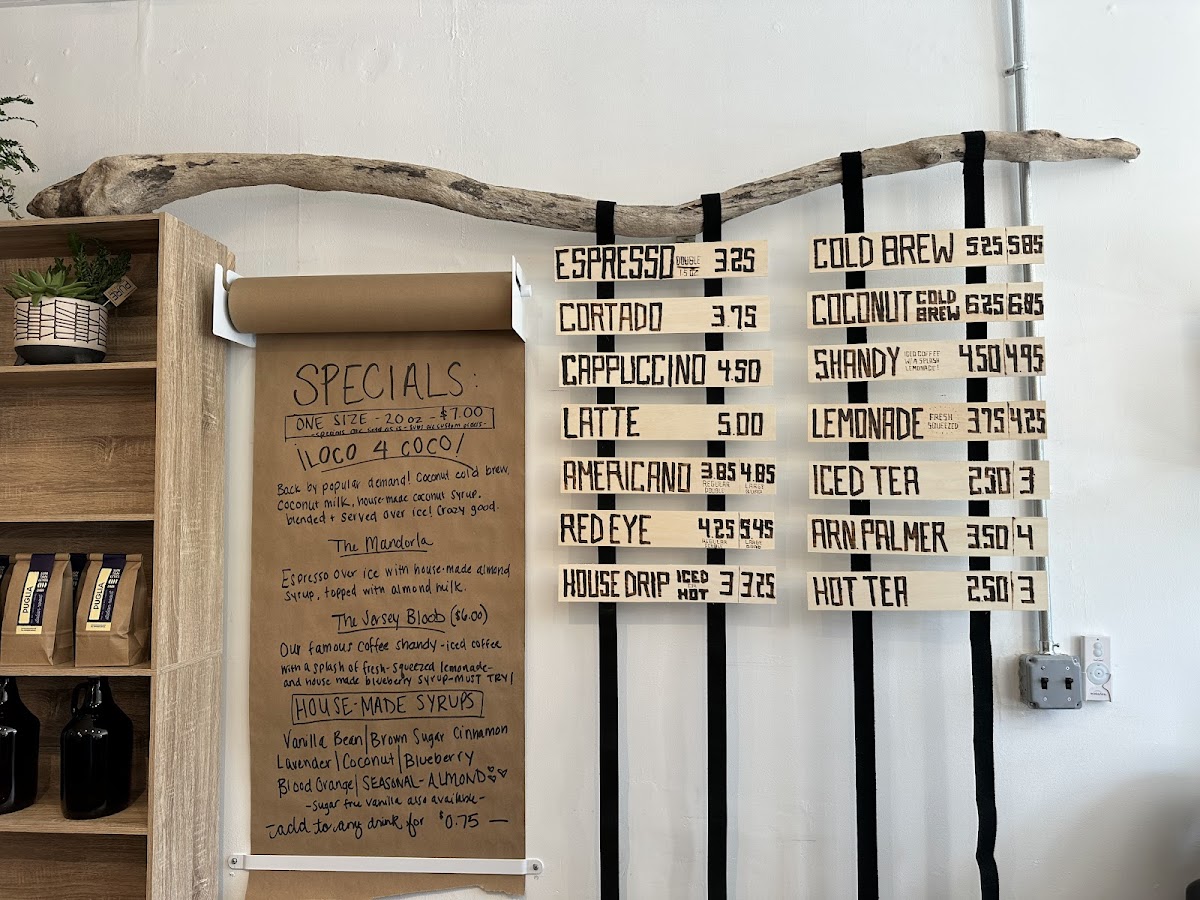 SPECIALS:
ONE SIZE - 20 oz - $7.00
¡LOCO 4 COCO!
Back by popular demand! Coconut cold brew,
Coconut milk, house-made coconut syrup.
blended + served over ice! Crazy good.
The Mandorla
Espresso over ice with house-made almond
syrup, topped with almond milk.
The Jersey Bloob ($6.00)
Our famous coffee shandy - iced coffee
with a splash of fresh-squeezed lemonade-
and house made blueberry syrup-MUST TRY!
HOUSE-MADE SYRUPS
Vanilla Bean|Brown Sugar Cinnamon
Lavender|Coconut|Blueberry
Blood Orange|SEASONAL-ALMOND
-sugar free vanilla also available-
-add to any drink for $0.75 -
ESPRESSO DOUBLE 1.5 OZ 3.25
CORTADO 3.75
CAPPUCCINO 4.50
LATTE 5.00
AMERICANO 3.85 4.85
REGULAR DOUBLE LARGE QUAD
RED EYE 4.25 5.45
REGULAR DOUBLE LARGE QUAD
HOUSE DRIP ICED OR HOT 3 3.25
COLD BREW 5.25 5.85
COCONUT COLD BREW 6.25 6.85
SHANDY ICED COFFEE W/ A SPLASH LEMONADE! 4.50 4.95
LEMONADE FRESH SQUEEZED 3.75 4.25
ICED TEA 2.50 3
ARN PALMER 3.50 4
HOT TEA 2.50 3
PURE
PUGLIA
PUGLIA